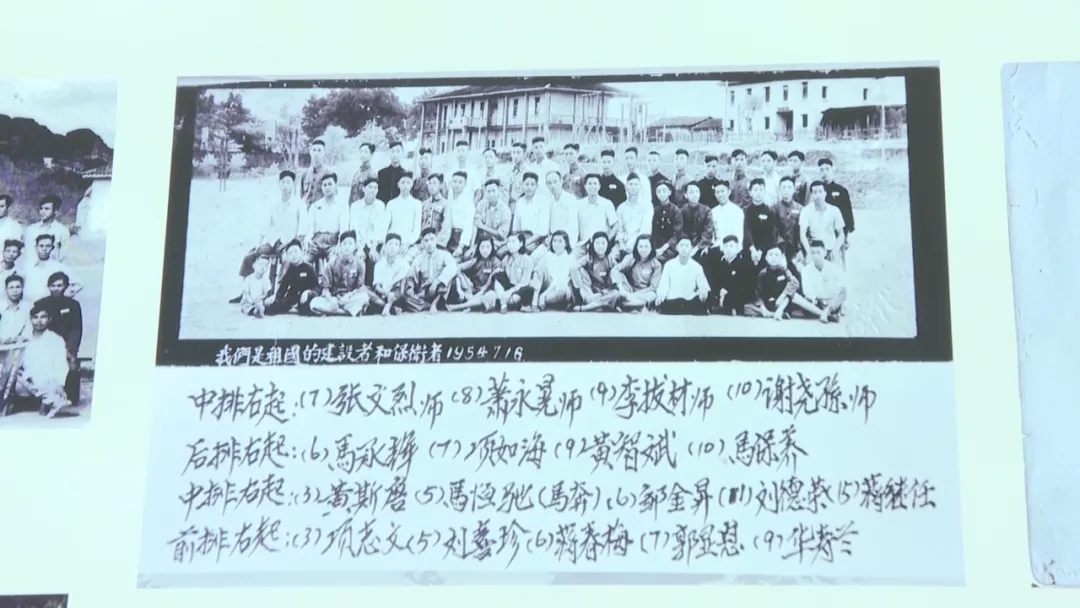 我們是祖國的建設者和保衛者1954 7 16
中排右起:(7)张文烈师(8)萧永晃师(9)李拔材师(10)谢尧孫师
后排右起:(6)馬承(7)项如海(9)黄智斌(10)馬保养
中排右起:(3)黄斯(5)馬恒驰(馬奔)(6)邹金昇(11)刘德荣(5)蒋继任
前排右起:(3)项志文(5)刘藝珍(6)蒋春梅(7)郭(9)华寿兰